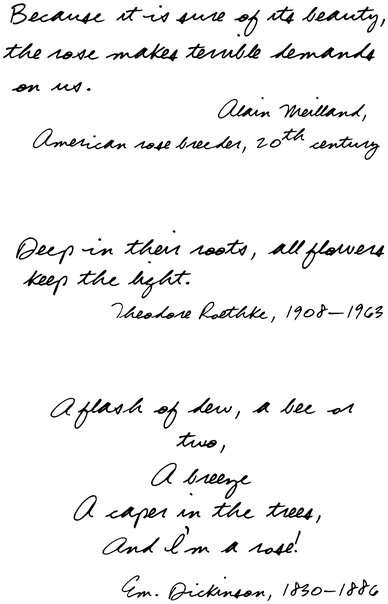 Because it is sure of its beauty,
the rose makes terrible demands
on us.
Alain Meilland,
American rose breeder, 20th century
Deep in their roots, all flowers
keep the light.
Theodore Roethke, 1908–1963
A flash of dew, a bee or
two,
A breeze
A caper in the trees,
And I'm a rose!
Em. Dickinson, 1830–1886